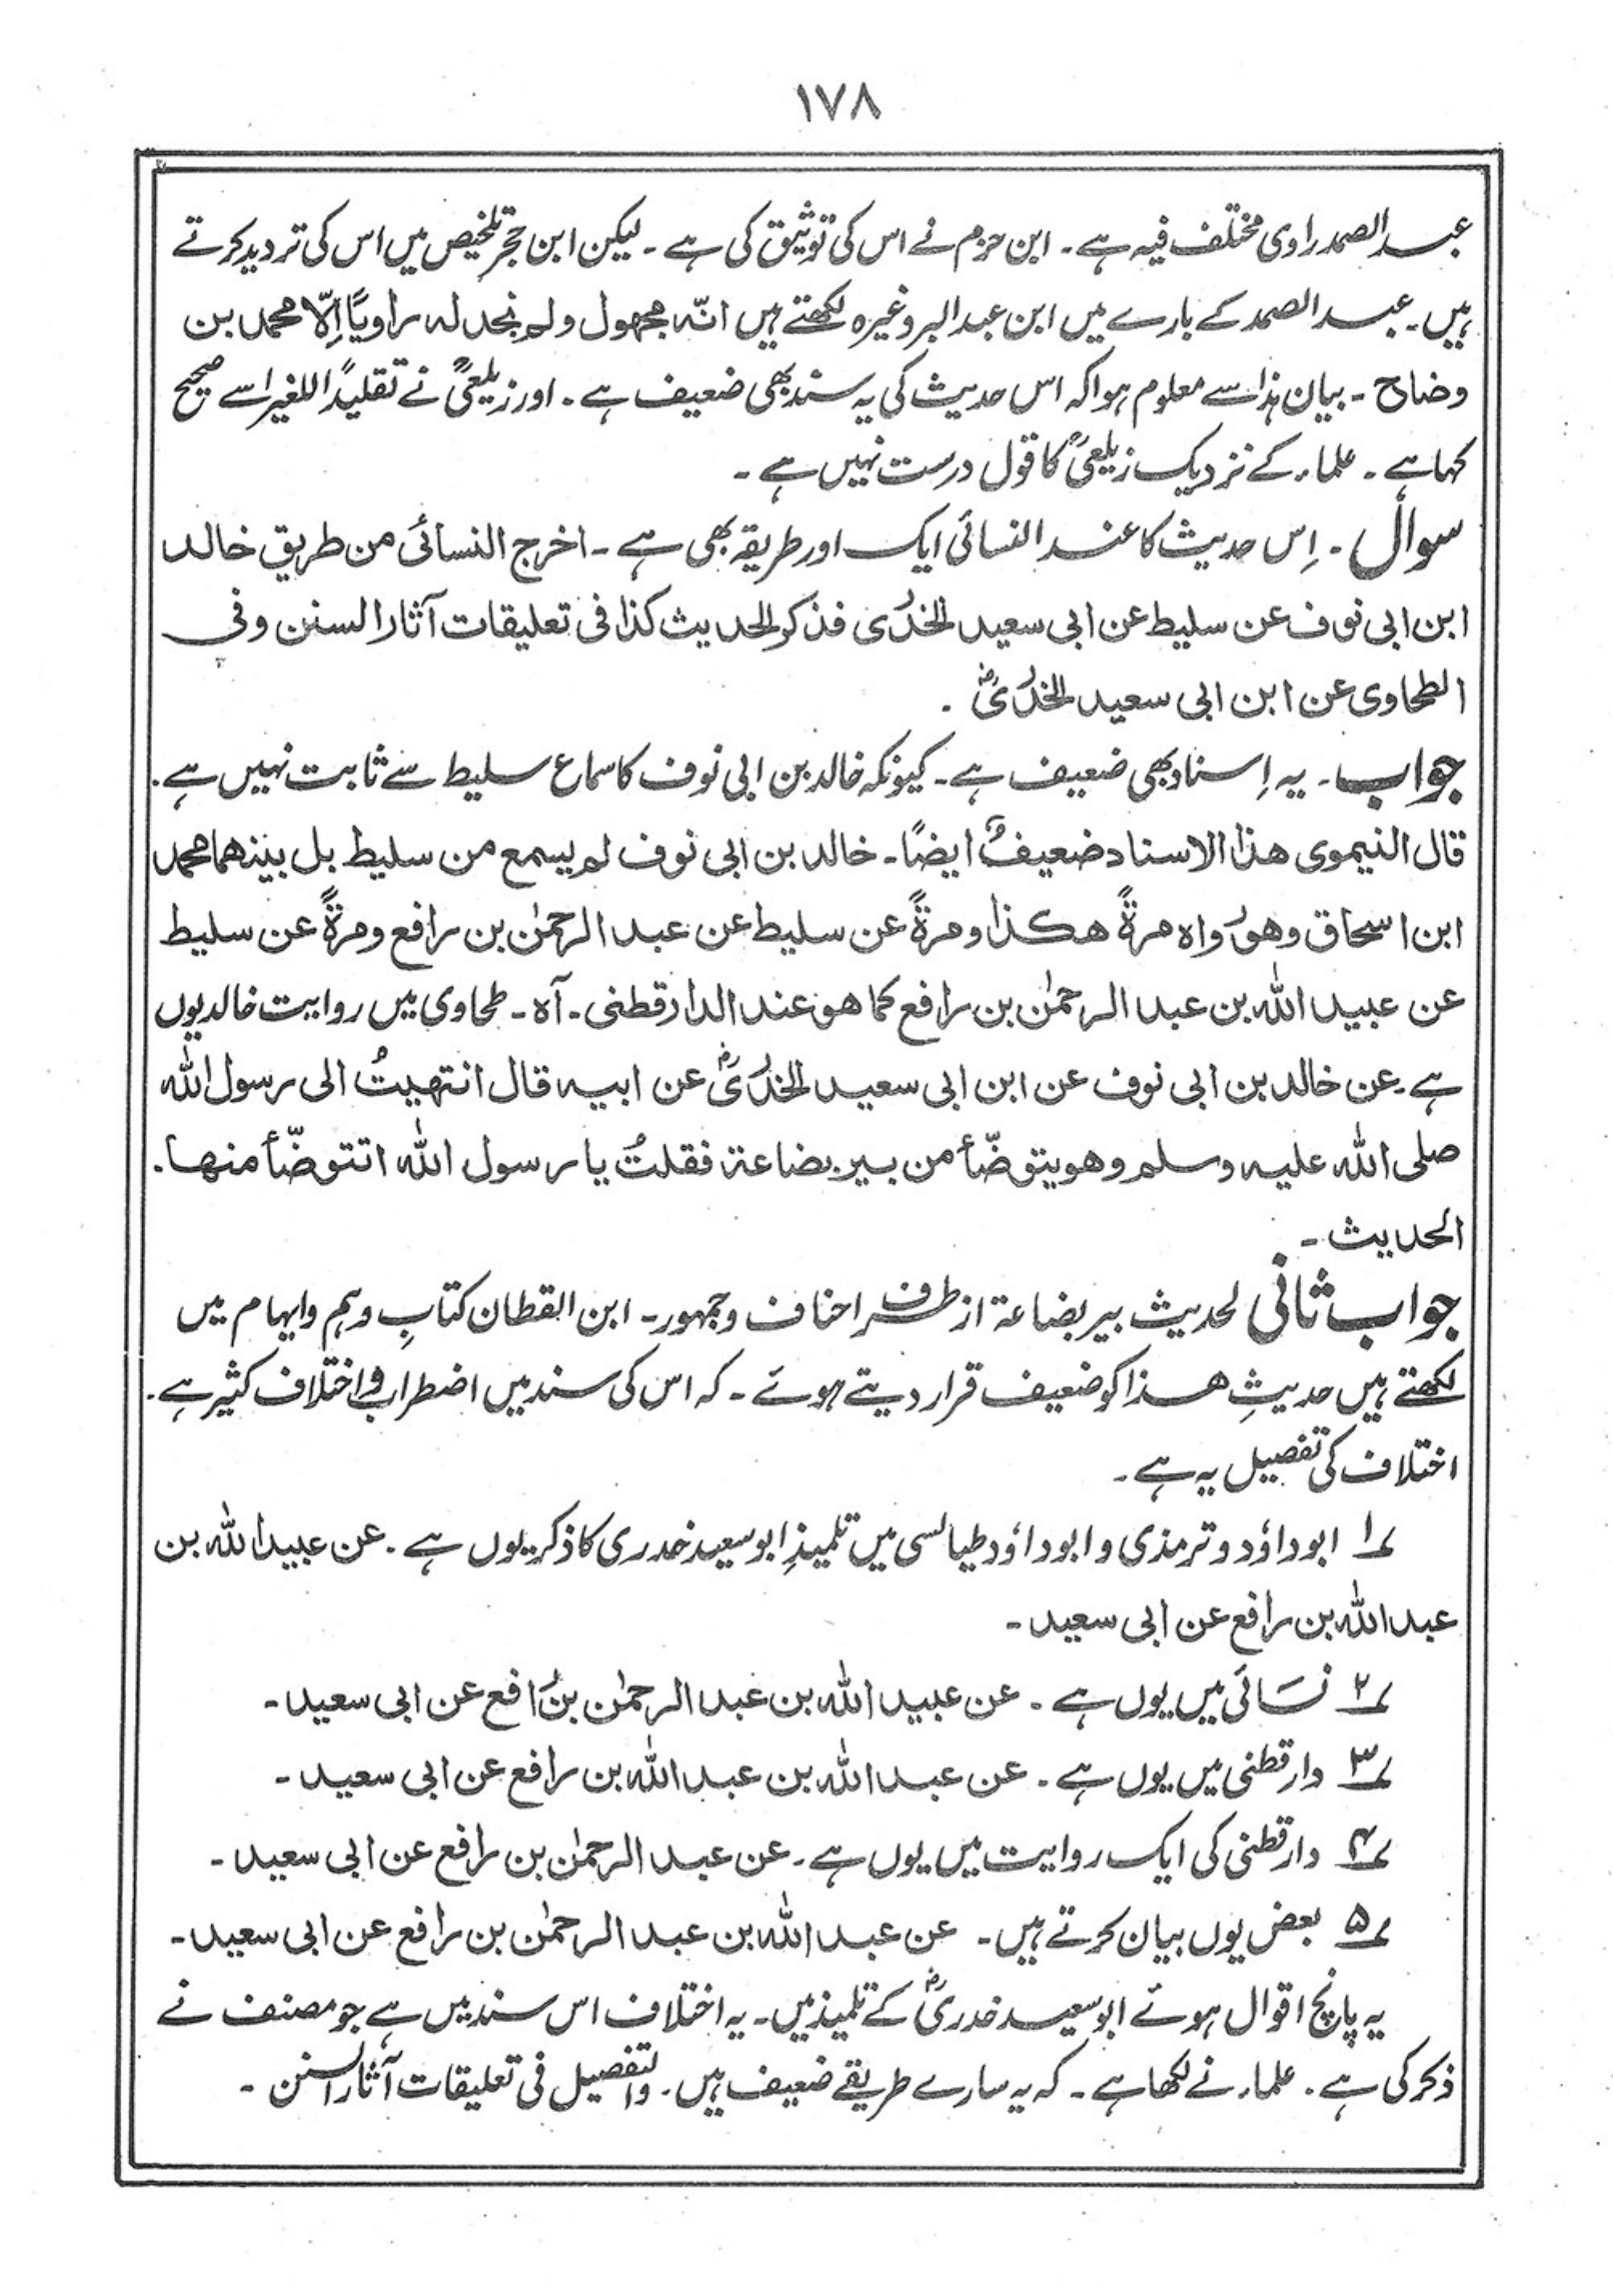 ١٧٨
عبد الصمد راوی مختلف فیہ ہے۔ ابن حزم نے اس کی توثیق کی ہے۔ لیکن ابن حجر تلخیص میں اس کی تردید کرتے
ہیں۔ عبد الصمد کے بارے میں ابن عبد البر وغیرہ لکھتے ہیں انّہ مجھول ولم نجد لہ راویًا اِلّا محمد بن
وضاح۔ بیان ہذا سے معلوم ہوا کہ اس حدیث کی یہ سند بھی ضعیف ہے۔ اور زیلعیؒ نے تقلیدًا للغیر اسے صحیح
کہا ہے۔ علماء کے نزدیک زیلعیؒ کا قول درست نہیں ہے۔
سوال۔ اِس حدیث کا عند النسائی ایک اور طریقہ بھی ہے۔ اخرج النسائی من طریق خالد
ابن ابی نوف عن سلیط عن ابی سعید الخدری فذکر الحدیث کذا فی تعلیقات آثار السنن وفی
الطحاوی عن ابن ابی سعید الخدریؓ ۔
جواب۔ یہ اِسناد بھی ضعیف ہے۔ کیونکہ خالد بن ابی نوف کا سماع سلیط سے ثابت نہیں ہے۔
قال النیموی ھذا الاسناد ضعیفٌ ایضًا۔ خالد بن ابی نوف لم یسمع من سلیط بل بینھما محمد
ابن اسحاق وھو رواہ مرۃً ھکذا ومرۃً عن سلیط عن عبد الرحمٰن بن رافع ومرۃً عن سلیط
عن عبید اللہ بن عبد الرحمٰن بن رافع کما ھو عند الدارقطنی۔ آہ۔ طحاوی میں روایت خالد یوں
ہے۔ عن خالد بن ابی نوف عن ابن ابی سعید الخدریؓ عن ابیہ قال انتھیتُ الی رسول اللہ
صلی اللہ علیہ وسلم وھو یتوضّأ من بیر بضاعۃ فقلتُ یا رسول اللہ اتتوضّأ منھا۔
الحدیث۔
جواب ثانی لحدیث بیر بضاعۃ از طرف احناف وجمہور۔ ابن القطان کتابِ وہم وایہام میں
لکھتے ہیں حدیثِ ھذا کو ضعیف قرار دیتے ہوئے۔ کہ اس کی سند میں اضطراب واختلاف کثیر ہے۔
اختلاف کی تفصیل یہ ہے۔
۱؎ ابوداؤد وترمذی وابوداؤد طیالسی میں تلمیذِ ابوسعید خدری کا ذکر یوں ہے۔ عن عبید اللہ بن
عبد اللہ بن رافع عن ابی سعید۔
۲؎ نسائی میں یوں ہے۔ عن عبید اللہ بن عبد الرحمٰن بن رافع عن ابی سعید۔
۳؎ دارقطنی میں یوں ہے۔ عن عبد اللہ بن عبد اللہ بن رافع عن ابی سعید۔
۴؎ دارقطنی کی ایک روایت میں یوں ہے۔ عن عبد الرحمٰن بن رافع عن ابی سعید۔
۵؎ بعض یوں بیان کرتے ہیں۔ عن عبد اللہ بن عبد الرحمٰن بن رافع عن ابی سعید۔
یہ پانچ اقوال ہوئے ابو سعید خدریؓ کے تلمیذ میں۔ یہ اختلاف اس سند میں ہے جو مصنف نے
ذکر کی ہے۔ علماء نے لکھا ہے۔ کہ یہ سارے طریقے ضعیف ہیں۔ والتفصیل فی تعلیقات آثار السنن۔